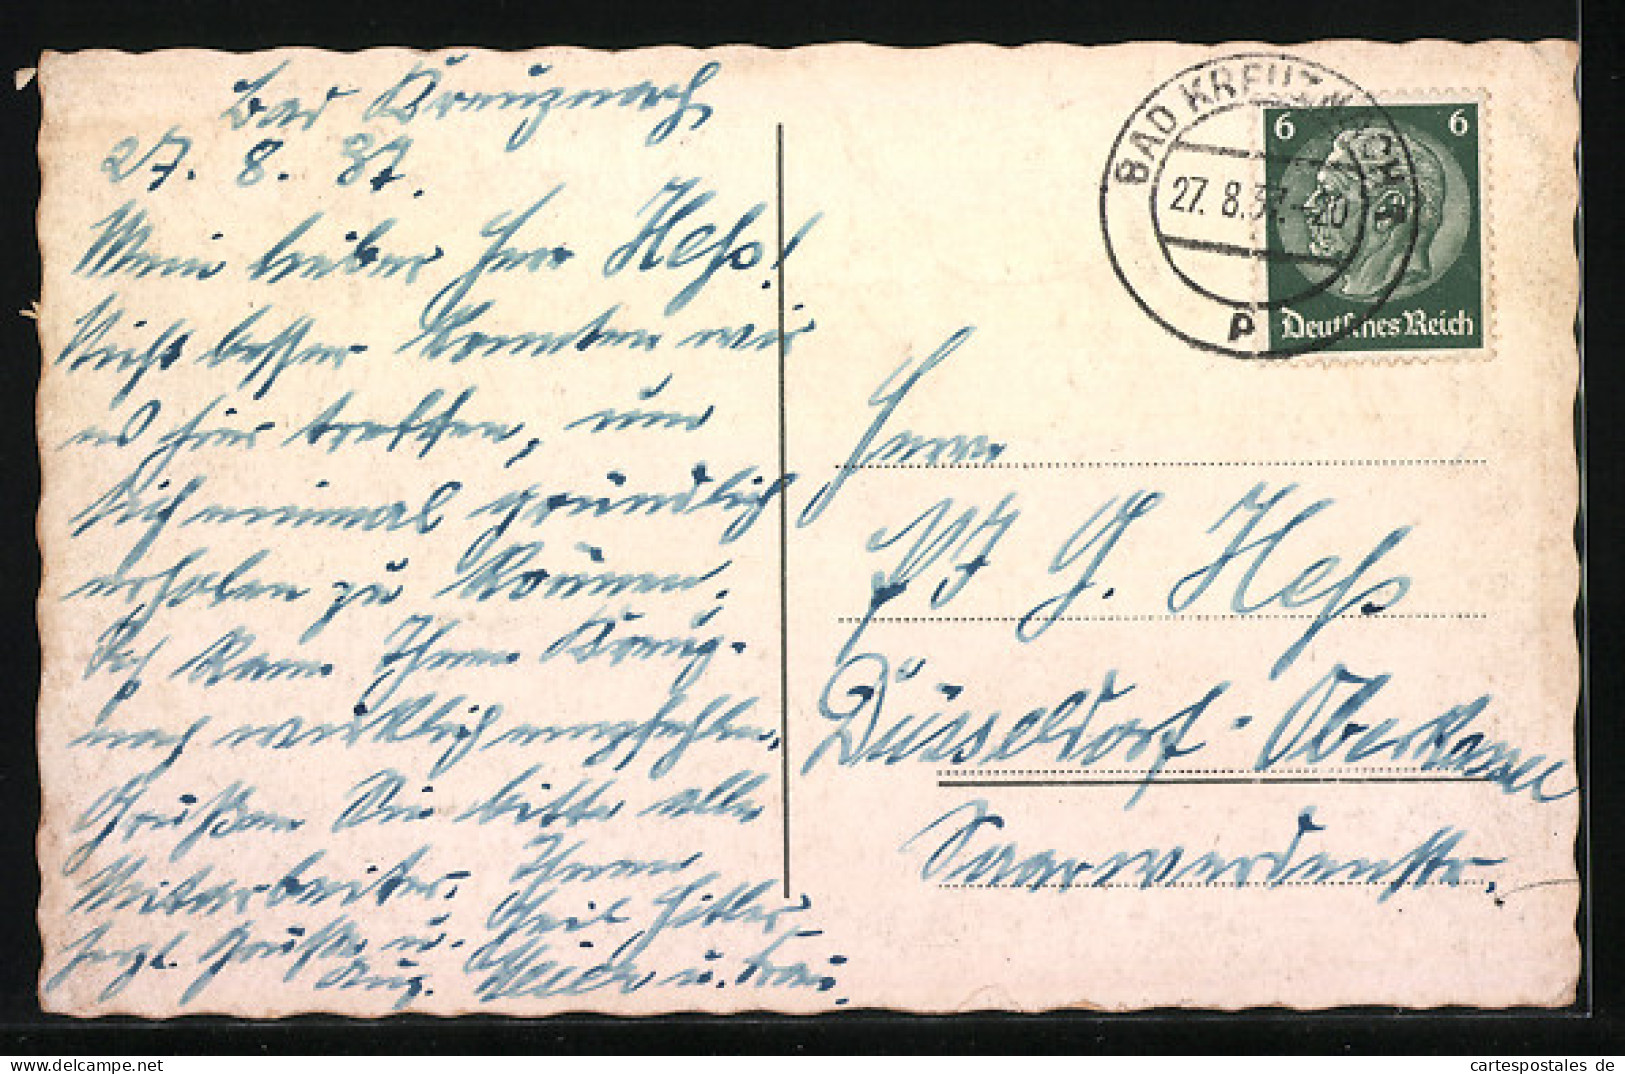 Bad Kreuznach
27. 8. 37.
Mein lieber Herr Heß!
Nicht besser konnten wir
es hier treffen, um
sich einmal gründlich
erholen zu können.
Ich kann Ihnen Kreuz-
nach wirklich empfehlen.
Grüßen Sie bitte alle
Mitarbeiter. Ihnen
herzl. Grüße u. Heil Hitler
Aug. Meier u. Frau.
BAD KREUZNACH
27. 8. 37.-20
p
6 6
Deutsches Reich
Herrn
G. Heß
Düsseldorf-Oberkassel
Saarwerdenstr.
cartespostales de